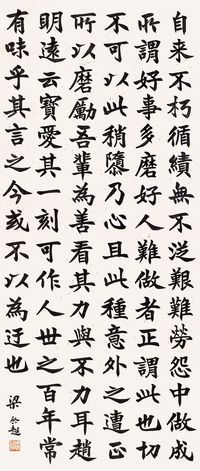 自来不朽循績無不泛艱難勞怨中做成
所謂好事多磨好人難做者正謂此也切
不可以此稍隳乃心且此種意外之遭正
所以磨勵吾輩為善看其力與不力耳趙
明遠云寶愛其一刻可作人世之百年常
有味乎其言之今或不以為迂也
梁啟超